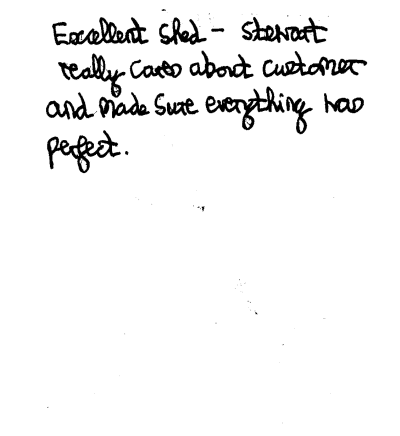 Excellent shed - stewart
really cares about customer
and made sure everything was
perfect.